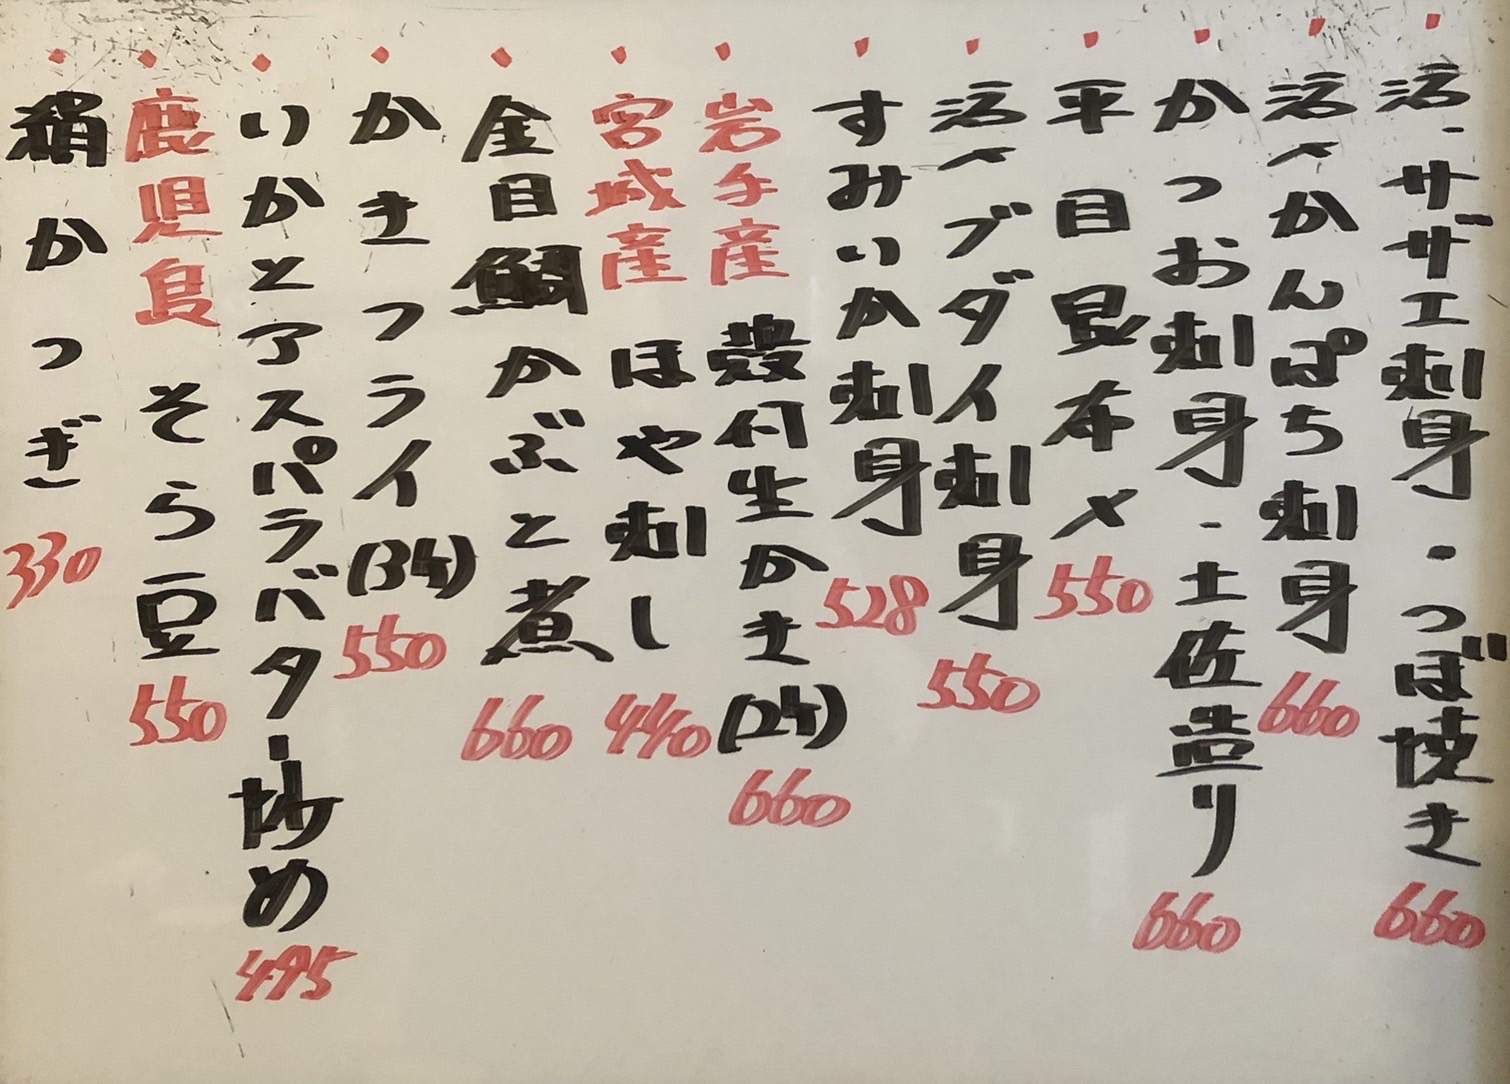 活・サザエ刺身・つぼ焼き 660
活〆かんぱち刺身 660
かつお刺身・土佐造り 660
平目昆布〆 550
活〆ブダイ刺身 550
すみいか刺身 528
岩手産 殻付生かき(2個) 660
宮城産 ほや刺し 440
金目鯛かぶと煮 660
かきフライ(3個) 550
いかとアスパラバター炒め 495
鹿児島 そら豆 550
絹かつぎ 330